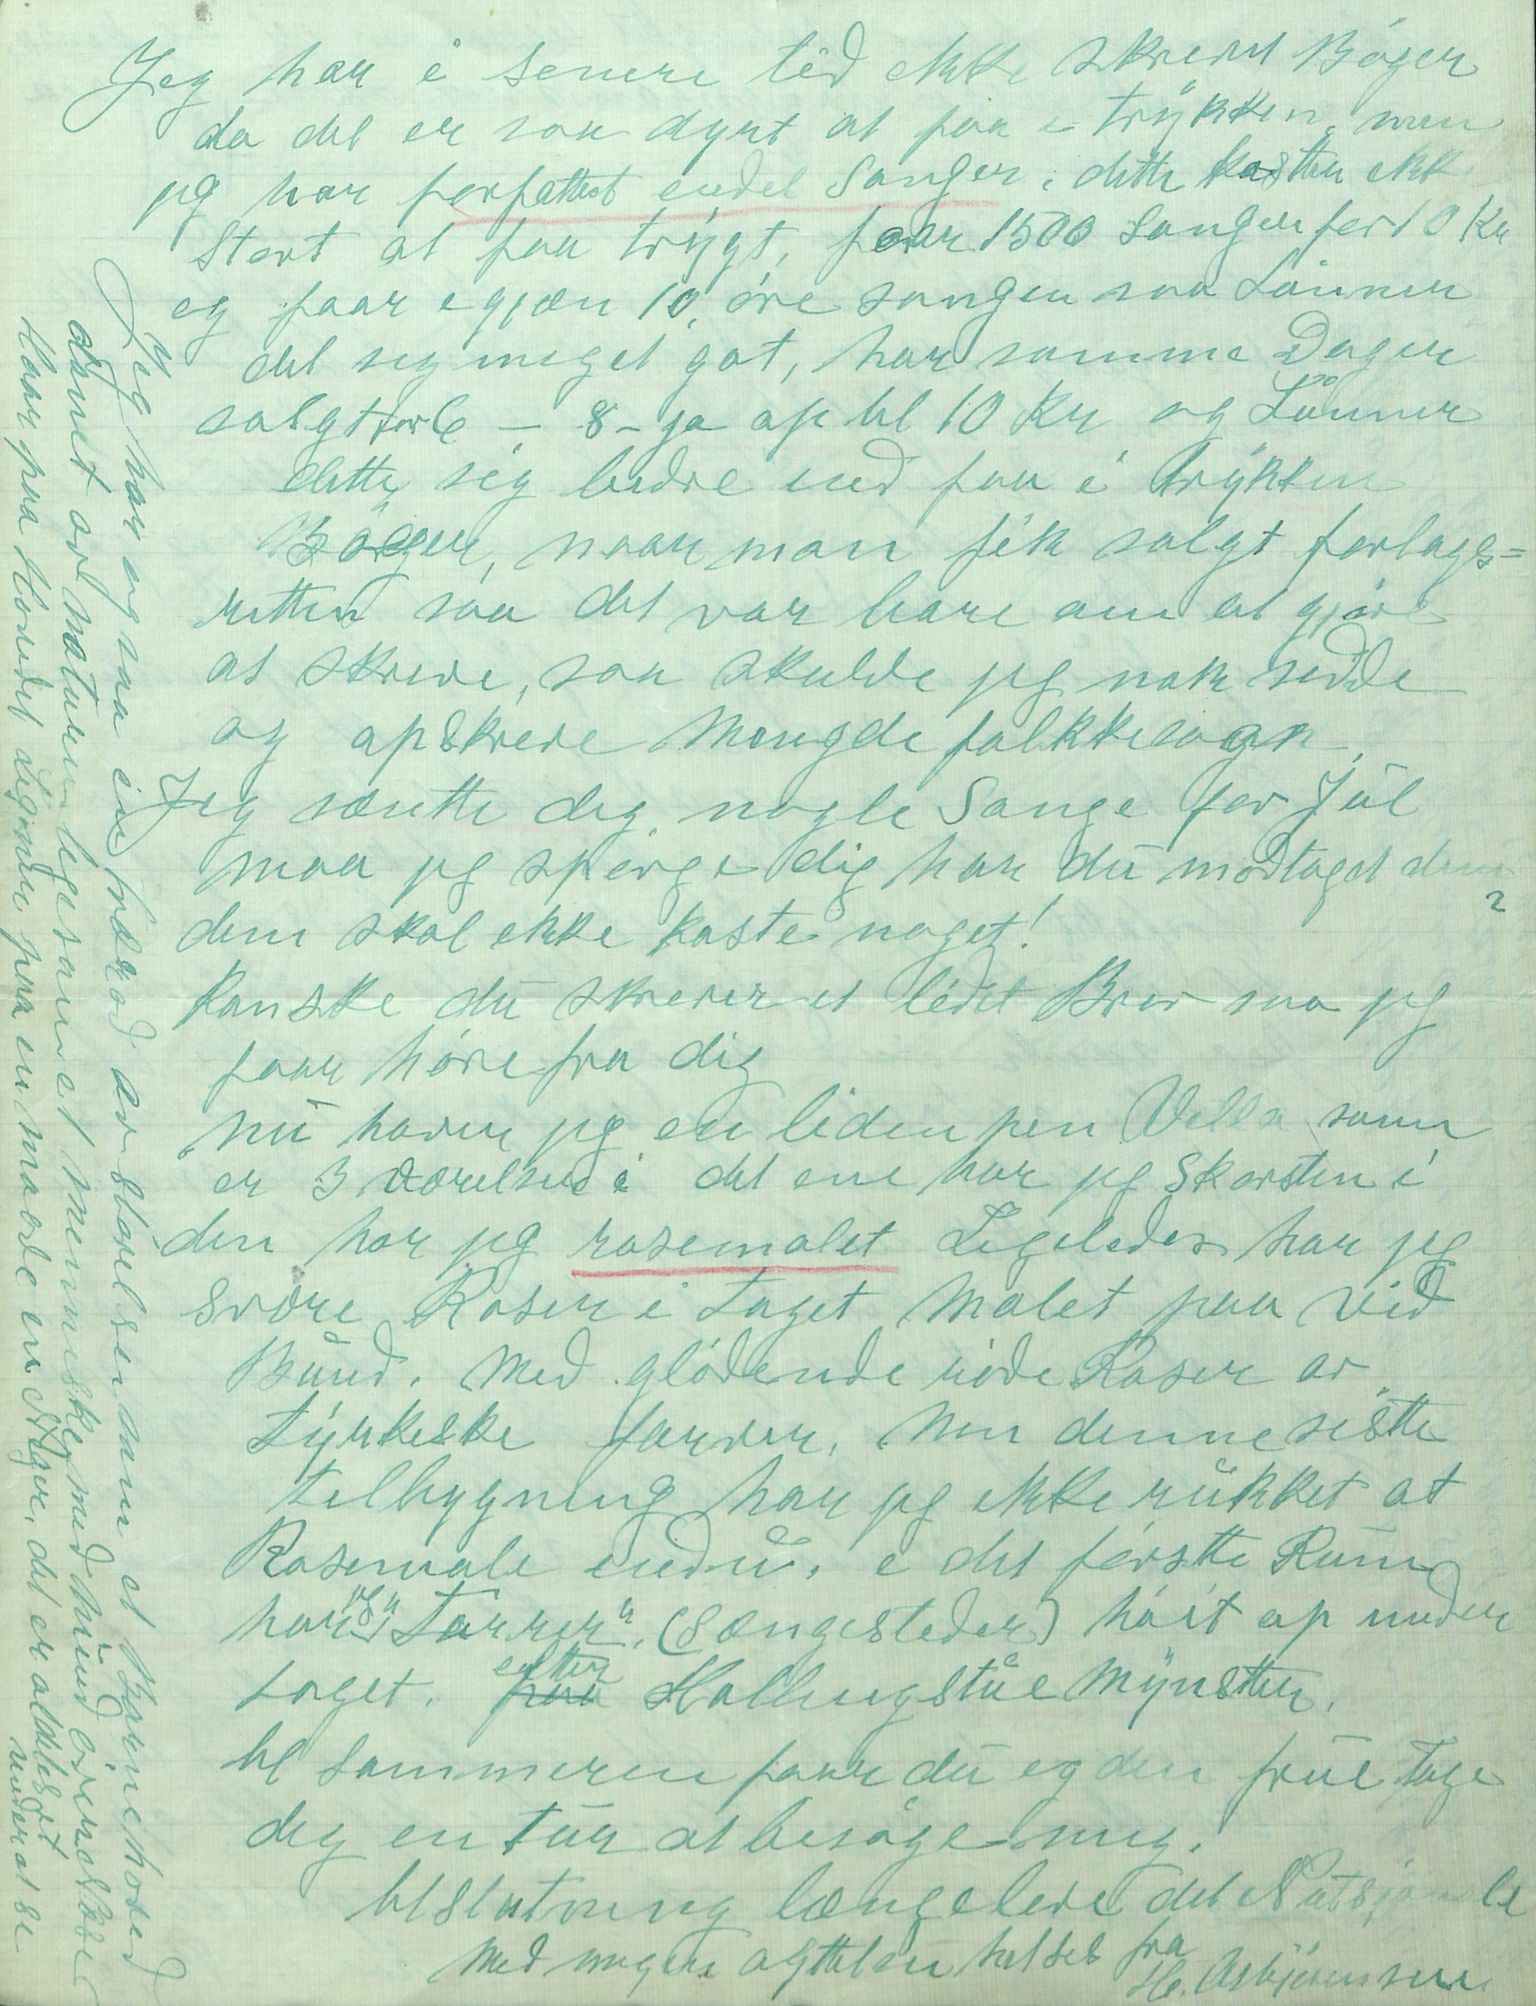 Jeg har i senere tid ikke skrevet Bøger
da det er saa dyrt at faa i trykken, men
jeg har forfattet endel Sanger, dette koster ikke
Stort at faa trygt, faar 1500 Sanger for 10 Kr
og faar igjæn 10 øre sangen saa Lønner
det seg meget got, har somme Dager
solgt for 6 – 8 – ja op til 10 Kr og Lønner
dette sig bedre end faa i trykken
Bøger, naar man fik solgt forlags=
retten saa det var bare om at gjøre
at skrive, saa skulde jeg nok sidde
og opskrive Mengde folkkesagn,
Jeg sentte dig nogle Sange for Jul
maa jeg spørge dig har du modtaget dem
?
dem skal ikke koste noget!
Kanske du skriver et lidet Brev saa jeg
faar høre fra dig
nu haver jeg en liden pen Villa som
er 3 værelser i det ene har jeg Skorsten i
den har jeg rosemalet Ligeledes har jeg
svære Roser i taget malet paa vid
Bund. med glødende røde Roser av
tyrkeske farver, men denne sistte
tilbygning har jeg ikke rukket at
Rosemale endnu. i det førstte Rum
har jeg "Lorrer", (Sængesteder) høit op under
taget. efter Hallingstue Mynster.
til Sommeren faar du og din frue tage
dig en tur at besøge mig.
tilslutning længeleve det Natsjonale
Med megen agttelse hilses fra
H. Asbjørnsen
Jeg har og saa en Hoved av størelse som et Barnehoved
dannet avl naturen ligesom et menneske, med Mund
Haar paa Hovedet Ligner paa en maade en Neger, det er aldeles et
under at se